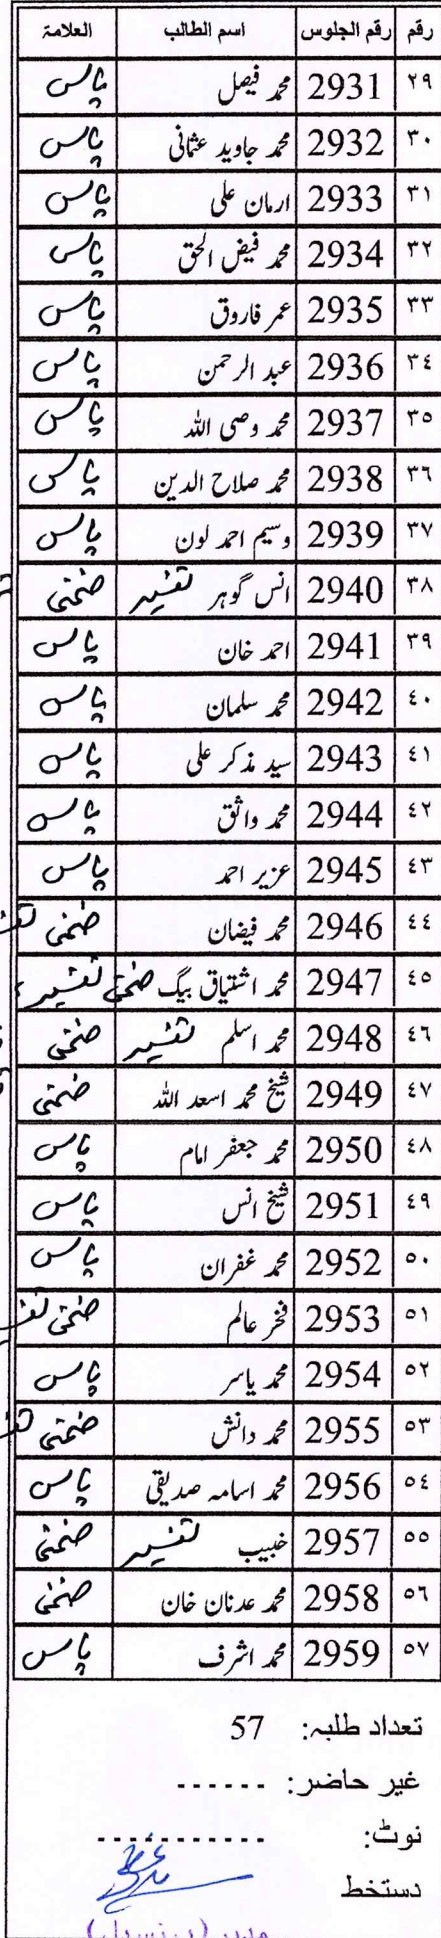 رقم رقم الجلوس اسم الطالب العلامة
٢٩ 2931 محمد فیصل پاس
٣٠ 2932 محمد جاوید عثمانی پاس
٣١ 2933 ارمان علی پاس
٣٢ 2934 محمد فیض الحق پاس
٣٣ 2935 عمر فاروق پاس
٣٤ 2936 عبد الرحمن پاس
٣٥ 2937 محمد وصی اللہ پاس
٣٦ 2938 محمد صلاح الدین پاس
٣٧ 2939 وسیم احمد لون پاس
٣٨ 2940 انس گوہر تفسیر ضمنی
٣٩ 2941 احمد خان پاس
٤٠ 2942 محمد سلمان پاس
٤١ 2943 سید مذکر علی پاس
٤٢ 2944 محمد واثق پاس
٤٣ 2945 عزیر احمد پاس
٤٤ 2946 محمد فیضان ضمنی
٤٥ 2947 محمد اشتیاق بیگ ضمنی تفسیر
٤٦ 2948 محمد اسلم تفسیر ضمنی
٤٧ 2949 شیخ محمد اسعد اللہ ضمنی
٤٨ 2950 محمد جعفر امام پاس
٤٩ 2951 شیخ انس پاس
٥٠ 2952 محمد غفران پاس
٥١ 2953 فخر عالم ضمنی
٥٢ 2954 محمد یاسر پاس
٥٣ 2955 محمد دانش ضمنی
٥٤ 2956 محمد اسامہ صدیقی پاس
٥٥ 2957 خبیب تفسیر ضمنی
٥٦ 2958 محمد عدنان خان ضمنی
٥٧ 2959 محمد اشرف پاس
تعداد طلبہ: 57
غیر حاضر: ------
نوٹ: ------------
دستخط